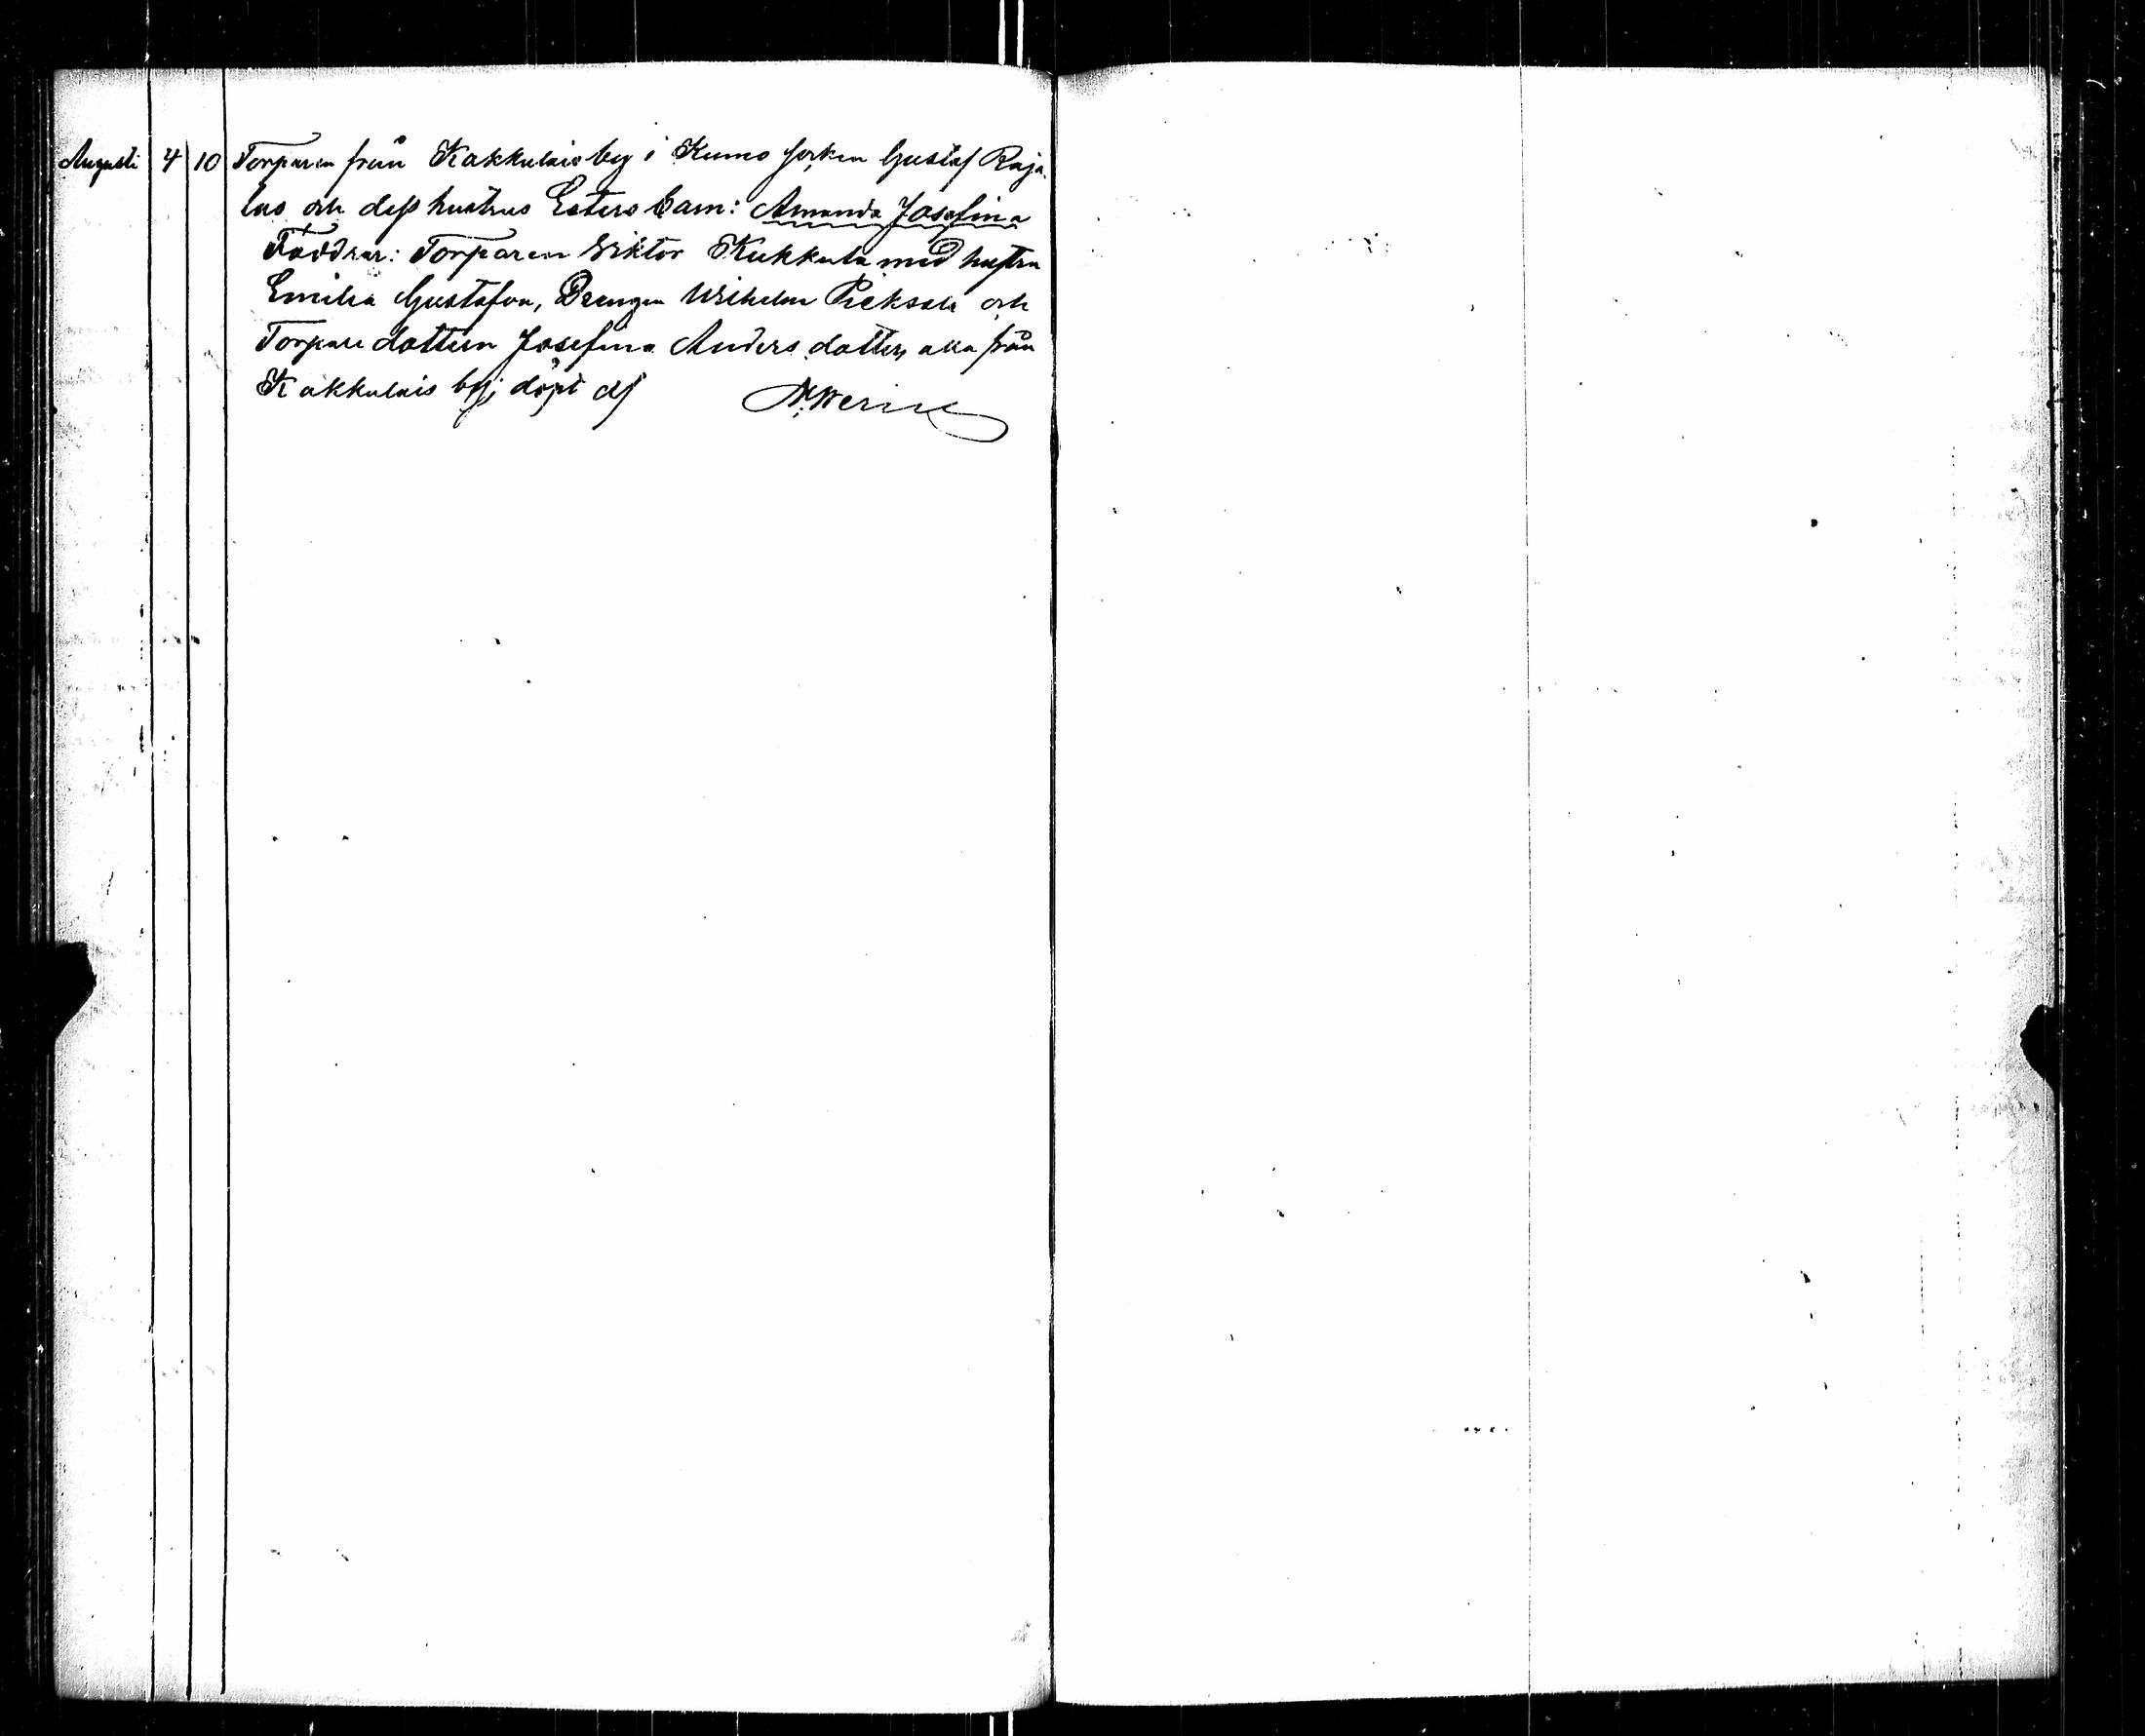 Augusti 4 10 Torparen från Kakkulais by i Kumo socken Gustaf Raja-
las och dess hustrus Esters barn: Amanda Josefina
Faddrar: Torparen Viktor Kukkula med hustru
Emilia Gustafva, Drengen Wilhelm och
Torpare dottern Josefina Anders dotter, alla från
Kakkulais by; döpt af